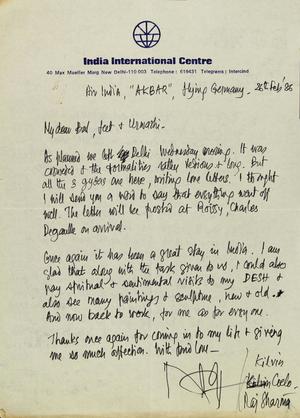 India International Centre
40 Max Mueller Marg New Delhi-110 003 Telephone : 619431 Telegrams : Intercind
Air India, "AKBAR", flying Germany. 26th Feb' 86
My dear Bal, Jeet & Urmashi -
As planned we left Delhi Wednesday morning. It was
crowded & the formalities rather tedious & long. But
all the 3 gyrs are here, writing long letters. I thought
I will send you a word to say that everything went off
well. The letter will be posted at Roissy, Charles
Degaulle on arrival.
Once again it has been a great stay in India. I am
glad that along with the task given to us, I could also
pay spiritual & sentimental visits to my DESH &
also see many paintings & sculpture, new & old.
And now back to work, for me as for every one.
Thanks once again for coming in to my life & giving
me so much affection. With fond love
Kilvin
Coelo
Raj Sharma